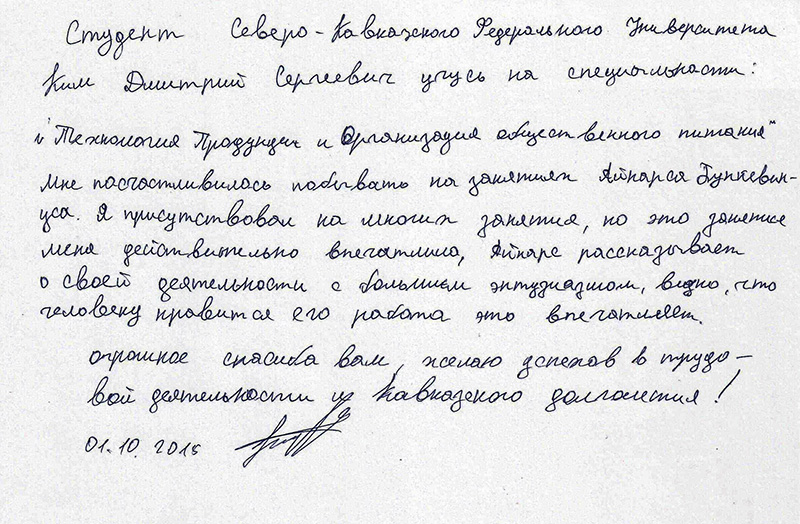 Студент Северо-Кавказского Федерального Университета
Ким Дмитрий Сергеевич учусь на специальности:
"Технология Продукции и Организация общественного питания"
Мне пасчастливилось побывать на занятиях Айнарса Пункевин-
уса. Я присутствовал на многих занятия, но это занятие
меня действительно впечатлила, Айнарс рассказывает
о своей деятельности с большим энтузиазмом, видно, что
человеку нравится его работа это впечатляет.
огромное спасиба вам, желаю успехов в трудо-
вой деятельности и Кавказского долголетия!
01.10.2015